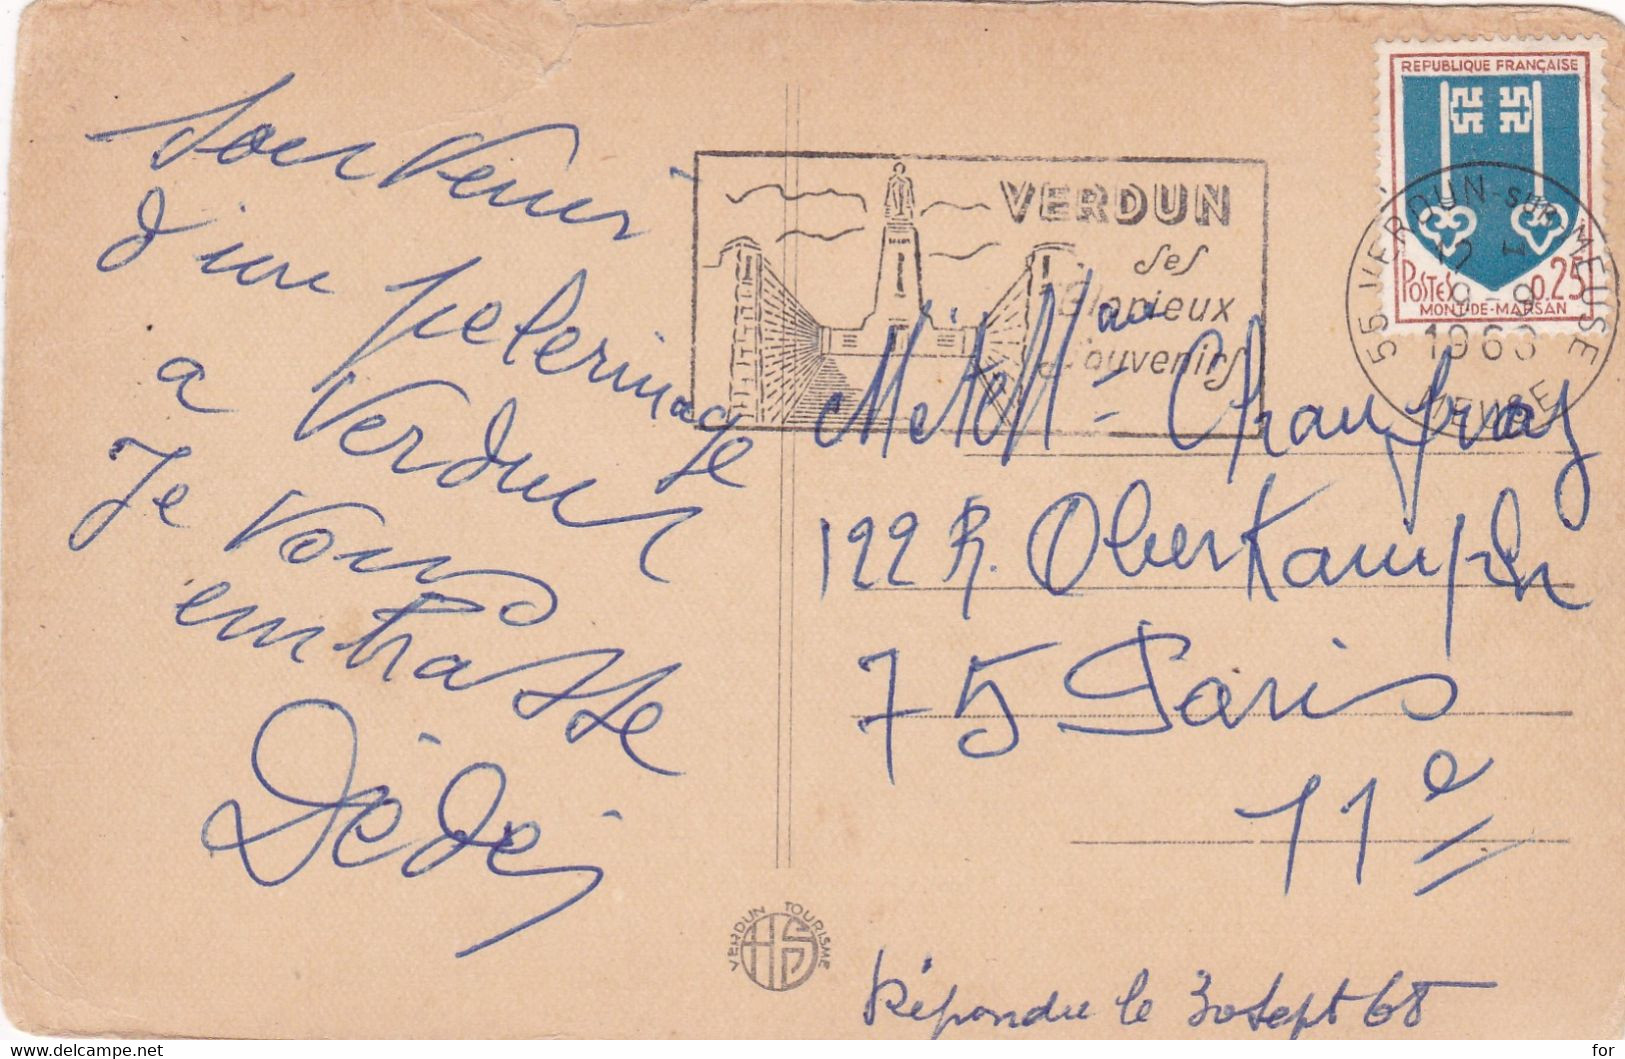 Souvenir
d'un pelerinage
a Verdun
Je vous
embrasse
Dédé
VERDUN
Ses
Glorieux
Souvenirs
REPUBLIQUE FRANÇAISE
POSTES 0,25
MONT-DE-MARSAN
55 VERDUN-SUR-MEUSE
12 H
9-9
196
MEUSE
122 R. Oberkampf
75 Paris
11e
VERDUN TOURISME
HS
Répondu le 30 Sept 68
www.delcampe.net
for